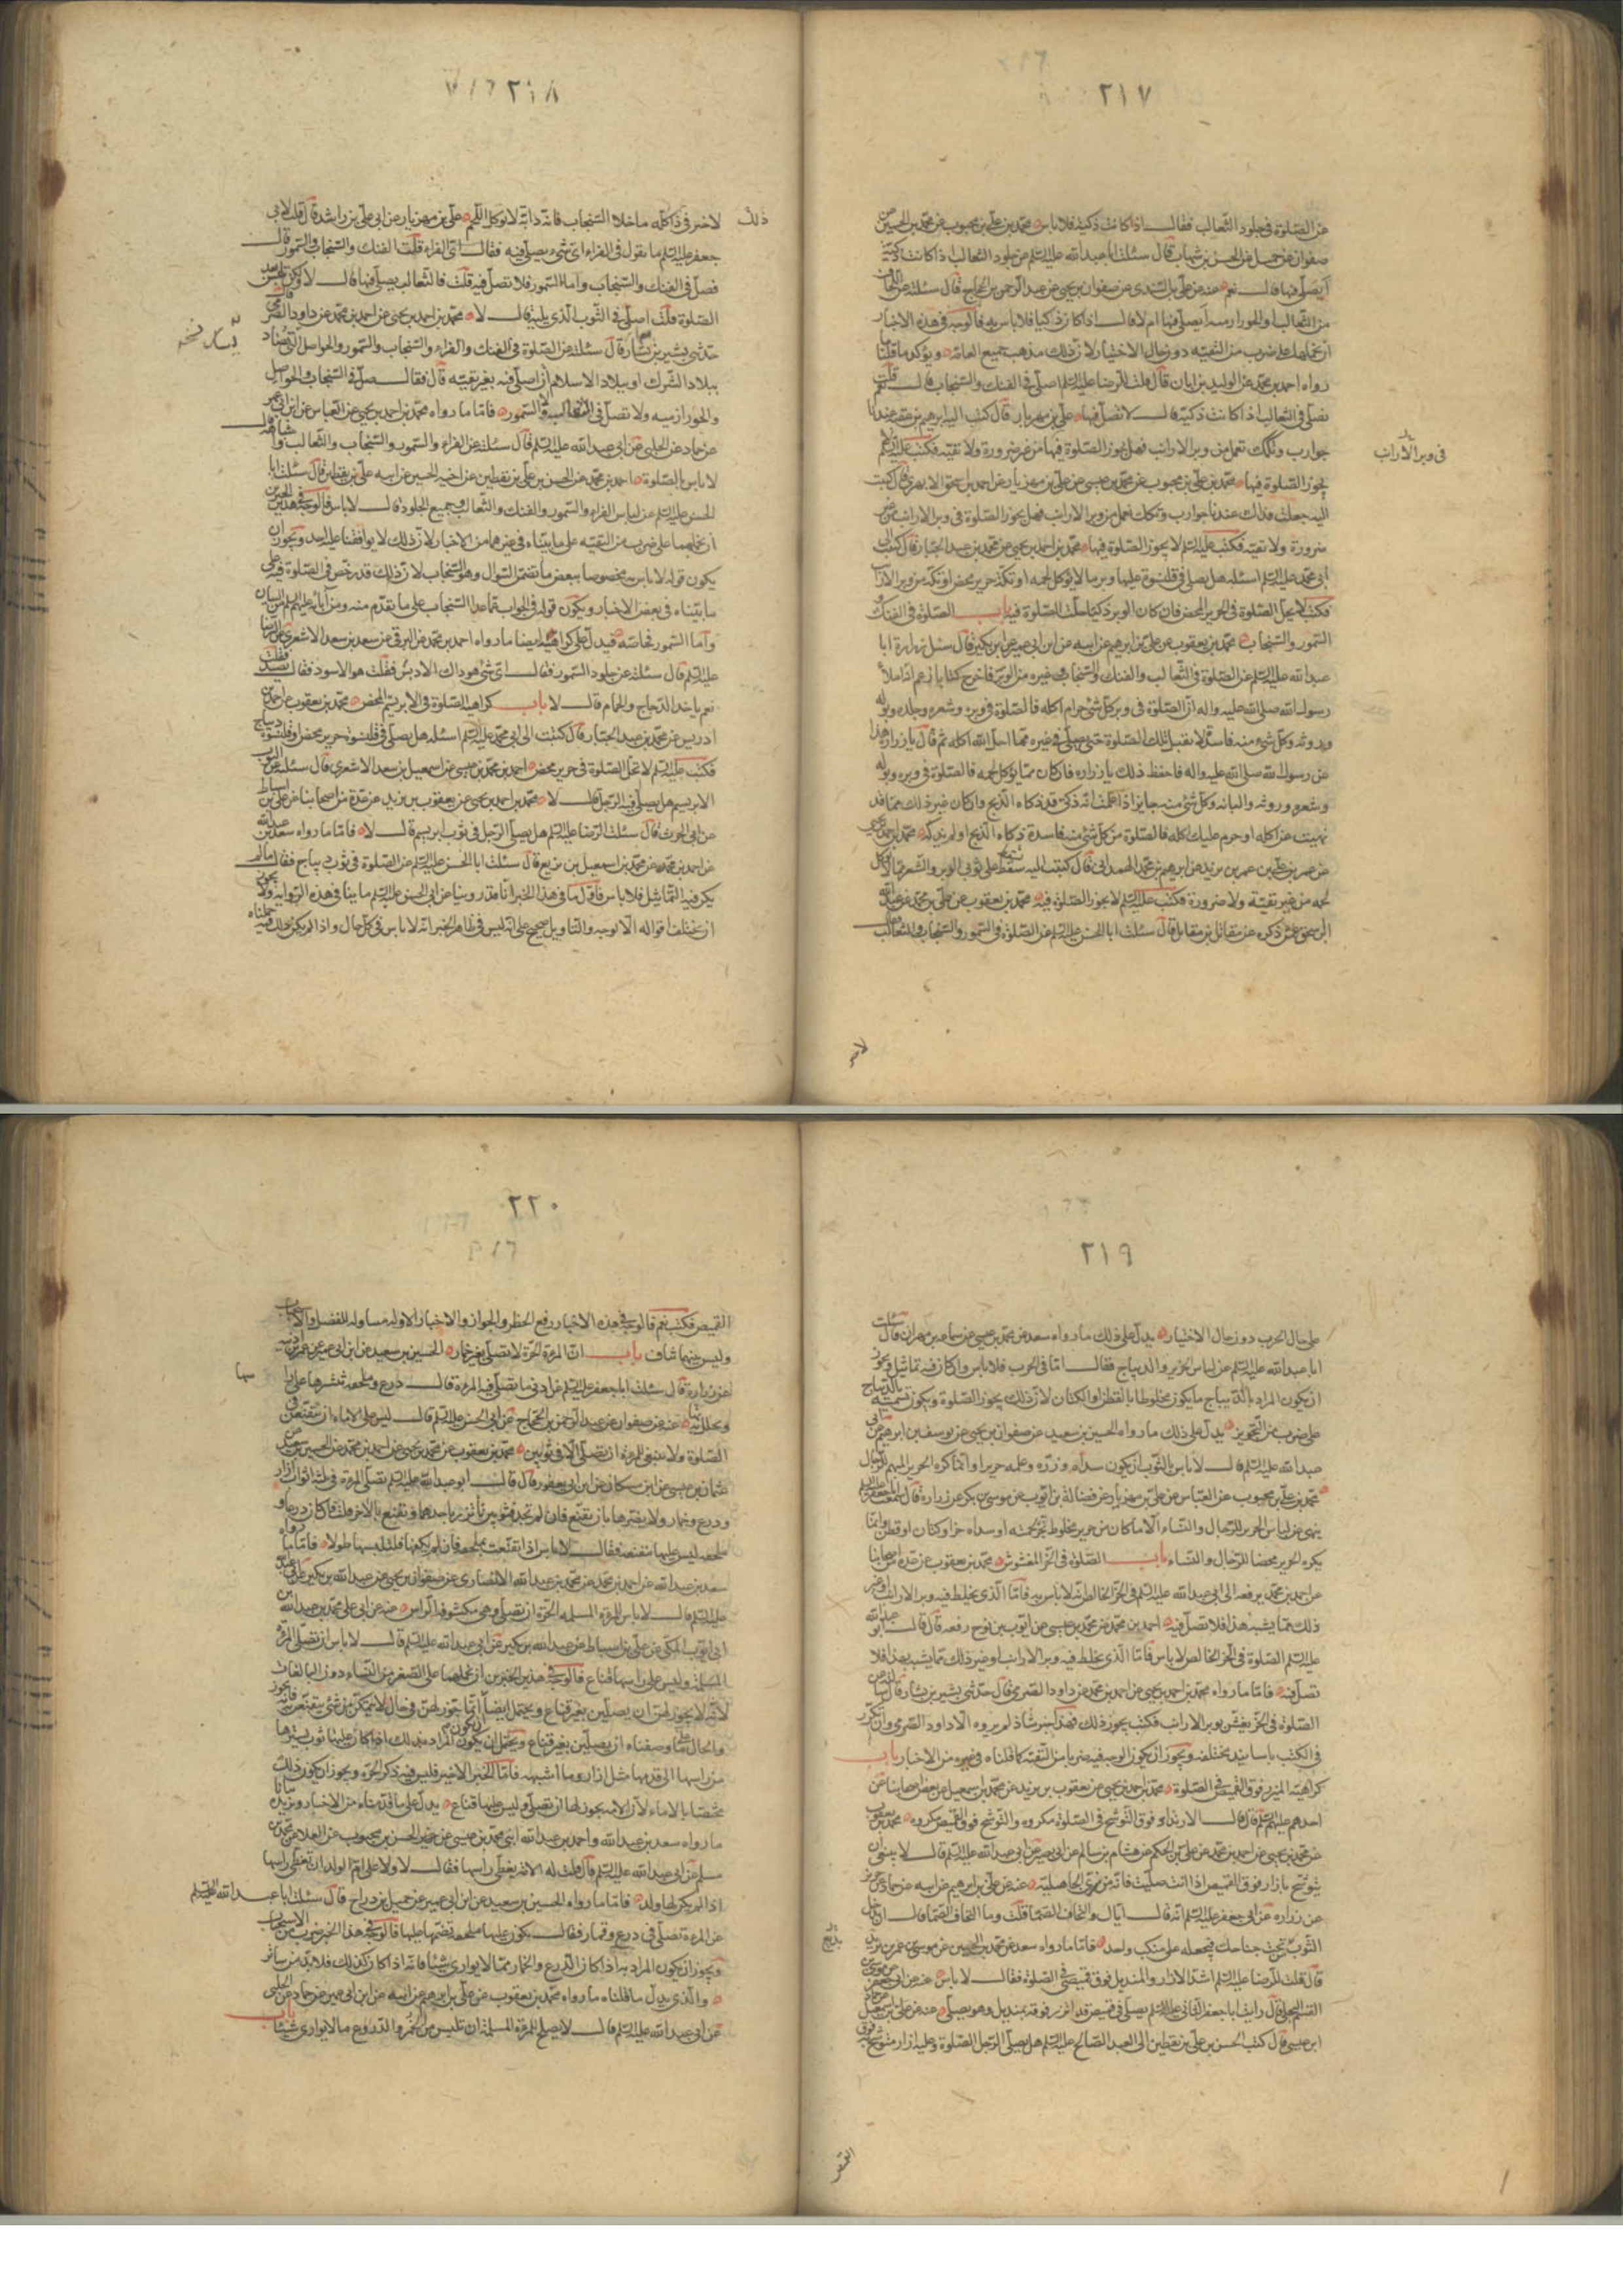 ٢١٧
عن الصلوة فى جلود الثعالب فقال اذا كانت ذكية فلا باس محمد بن على بن محبوب عن محمد بن الحسين عن
صفوان عن جميل عن الحسن بن شهاب قال سئلت ابا عبد الله عليه السلم عن جلود الثعالب اذا كانت ذكية
أيصلى فيها قال نعم عنه عن على بن السندى عن صفوان بن يحيى عن عبد الرحمن بن الحجاج قال سئلته عن
من الثعالب او الخوارزمية أيصلى فيها ام لا قال اذا كان ذكيا فلا باس به فالوجه فى هذه الاخبار
ان نحملها على ضرب من التقية دون حال الاختيار لان ذلك مذهب جميع العامة ويؤكد ما قلناه
رواه احمد بن محمد عن الوليد بن ابان قال قلت للرضا عليه السلم اصلى فى الفنك والسنجاب قال نعم قلت
نصلى فى الثعالب اذا كانت ذكية قال لا تصل فيها على بن مهزيار قال كتب اليه ابراهيم بن عقبة عندنا
جوارب وتكك تعمل من وبر الارانب فهل يجوز الصلوة فيها من غير ضرورة ولا تقية فكتب عليه السلم لا
فى وبر الارانب
يجوز الصلوة فيها محمد بن على بن محبوب عن محمد بن عيسى عن على بن مهزيار عن احمد بن اسحق الابهرى قال كتبت
اليه جعلت فداك عندنا جوارب وتكك تعمل من وبر الارانب فهل يجوز الصلوة فى وبر الارانب من غير
ضرورة ولا تقية فكتب عليه السلم لا يجوز الصلوة فيها محمد بن احمد بن يحيى عن محمد بن عبد الجبار قال كتبت الى
ابى محمد عليه السلم اسئله هل يصلى فى قلنسوة عليها وبر ما لا يؤكل لحمه او تكة حرير محض او تكة من وبر الارانب
فكتب لا يحل الصلوة فى الحرير المحض فان كان الوبر ذكيا حلت الصلوة فيه باب الصلوة فى الفنك و
السمور والسنجاب محمد بن يعقوب عن على بن ابرهيم عن ابيه عن ابن ابى عمير عن ابن بكير قال سئل زرارة ابا
عبد الله عليه السلم عن الصلوة فى الثعالب والفنك والسنجاب وغيره من الوبر فاخرج كتابا زعم انه املاء
رسول الله صلى الله عليه واله ان الصلوة فى وبر كل شئ حرام اكله فالصلوة فى وبره وشعره وجلده وبوله
وروثه وكل شئ منه فاسد لا تقبل تلك الصلوة حتى يصلى فى غيره مما احل الله اكله ثم قال يا زرارة هذا
عن رسول الله صلى الله عليه واله فاحفظ ذلك يا زراره فان كان مما يؤكل لحمه فالصلوة فى وبره وبوله
وشعره وروثه والبانه وكل شئ منه جايز اذا علمت انه ذكى قد ذكاه الذبح وان كان غير ذلك مما قد
نهيت عن اكله او حرم عليك اكله فالصلوة فى كل شئ منه فاسدة ذكاه الذبح او لم يذكه محمد بن احمد بن يحيى
عن عمر بن على بن عمر بن يزيد عن ابرهيم بن محمد الهمدانى قال كتبت اليه يسقط على ثوبى الوبر والشعر مما لا يؤكل
لحمه من غير تقية ولا ضرورة فكتب عليه السلم لا يجوز الصلوة فيه محمد بن يعقوب عن على بن محمد عن عبد الله
ابن اسحق عمن ذكره عن مقاتل بن مقاتل قال سئلت ابا الحسن عليه السلم عن الصلوة فى السمور والسنجاب والثعالب فقال
لا خير
٢١٨
لا خير فى ذا كله ما خلا السنجاب فانه دابة لا تؤكل اللحم على بن مهزيار عن ابى على بن راشد قال قلت لابى
ذلك
جعفر عليه السلم ما تقول فى الفراء اى شئ يصلى فيه فقال اى الفراء قلت الفنك والسنجاب والسمور قال
فصل فى الفنك والسنجاب واما السمور فلا تصل فيه قلت فالثعالب يصلى فيها قال لا ولكن تلبس بعد
الصلوة قلت اصلى فى الثوب الذى يليه قال لا محمد بن احمد بن يحيى عن احمد بن محمد عن داود الصرمى قال
حدثنى بشير بن بشار قال سئلته عن الصلوة فى الفنك والفراء والسنجاب والسمور والحواصل التى تصاد
يسار نسخه
ببلاد الشرك او ببلاد الاسلام ان اصلى فيه بغير تقية قال فقال صل فى السنجاب والحواصل
والخوارزمية ولا تصل فى الثعالب ولا السمور فاما ما رواه محمد بن احمد بن يحيى عن العباس عن ابن ابى عمير
عن حماد عن الحلبى عن ابى عبد الله عليه السلم قال سئلته عن الفراء والسمور والسنجاب والثعالب واشباهه قال
لا باس بالصلوة احمد بن محمد عن الحسن بن على بن يقطين عن اخيه الحسين عن ابيه على بن يقطين قال سئلت ابا
الحسن عليه السلم عن لباس الفراء والسمور والفنك والثعالب وجميع الجلود قال لا باس فالوجه فى هذين الخبرين
ان نحملهما على ضرب من التقية على ما بيناه فى غيرهما من الاخبار لان ذلك لا يوافقنا عليه احد ويجوز ان
يكون قوله لا باس به مخصوصا ببعض ما تضمن السؤال وهو السنجاب لان ذلك قد رخص فى الصلوة فيه على
ما بيناه فى بعض الاخبار ويكون قوله فى الجواب عما عدا السنجاب على ما تقدم منه ومن آبائه عليهم السلم من البيان
واما السمور خاصه فيدل على كراهيته ايضا ما رواه احمد بن محمد عن البرقى عن سعد بن سعد الاشعرى عن الرضا
عليه السلم قال سئلته عن جلود السمور فقال اى شئ هو ذاك الادبس فقلت هو الاسود فقال يصيد فقلت
نعم ياخذ الدجاج والحمام قال لا باب كراهية الصلوة فى الابريسم المحض محمد بن يعقوب عن احمد بن
ادريس عن محمد بن عبد الجبار قال كتبت الى ابى محمد عليه السلم اسئله هل يصلى فى قلنسوة حرير محض او قلنسوة ديباج
فكتب عليه السلم لا تحل الصلوة فى حرير محض احمد بن محمد بن عيسى عن اسمعيل بن سعد الاشعرى قال سئلته عن الثوب
الابريسم هل يصلى فيه الرجل قال لا محمد بن احمد بن يحيى عن يعقوب بن يزيد عن عدة من اصحابنا عن على بن اسباط
عن ابى الحرث قال سئلت الرضا عليه السلم هل يصلى الرجل فى ثوب ابريسم قال لا فاما ما رواه سعد بن عبد الله
عن احمد بن محمد عن محمد بن اسمعيل بن بزيع قال سئلت ابا الحسن عليه السلم عن الصلوة فى ثوب ديباج فقال ما لم
يكن فيه التماثيل فلا باس فاول ما فى هذا الخبر انا قد روينا عن ابى الحسن عليه السلم ما ينافى هذه الرواية ولا يجوز
ان تختلف اقواله الا لوجه والتاويل صحيح على انه ليس فى ظاهر الخبر انه لا باس فى كل حال واذا لم يكن ذلك فيه حملناه
٢١٩
على حال الحرب دون حال الاختيار يدل على ذلك ما رواه سعد عن محمد بن عيسى عن سماعة بن مهران قال سئلت
ابا عبد الله عليه السلم عن لباس الحرير والديباج فقال اما فى الحرب فلا باس وان كان فيه تماثيل ويجوز
ان يكون المراد بالديباج ما يكون مخلوطا بالقطن او الكتان لان ذلك يجوز الصلوة ويكون تسميته بالديباج
على ضرب من التجويز يدل على ذلك ما رواه الحسين بن سعيد عن صفوان بن يحيى عن يوسف بن ابرهيم عن ابى
عبد الله عليه السلم قال لا باس بالثوب ان يكون سداه وزره وعلمه حريرا وانما كره الحرير المبهم للرجال
محمد بن على بن محبوب عن العباس عن على بن مهزيار عن فضالة بن ايوب عن موسى بن بكر عن زرارة قال سمعت ابا جعفر عليه السلم
ينهى عن لباس الحرير للرجال والنساء الا ما كان من حرير مخلوط بخز لحمته او سداه خز او كتان او قطن وانما
يكره الحرير محضا للرجال والنساء باب الصلوة فى الخز المغشوش محمد بن يعقوب عن عدة من اصحابنا
عن احمد بن محمد يرفعه الى ابى عبد الله عليه السلم فى الخز الخالص انه لا باس به فاما الذى يخلط فيه وبر الارانب وغير
ذلك مما يشبه هذا فلا تصل فيه احمد بن محمد عن محمد بن عيسى عن ايوب بن نوح رفعه قال قال ابو عبد الله
عليه السلم الصلوة فى الخز الخالص لا باس فاما الذى يخلط فيه وبر الارانب او غير ذلك مما يشبه هذا فلا
تصل فيه فاما ما رواه محمد بن احمد بن يحيى عن احمد بن محمد عن داود الصرمى قال حدثنى بشير بن بشار قال سئلته عن
الصلوة فى الخز يغش بوبر الارانب فكتب يجوز ذلك فهذا خبر شاذ لم يروه الا داود الصرمى وان تكرر
فى الكتب باسانيد مختلفه ويجوز ان يكون الوجه فيه ضربا من التقية كما قلناه فى غيره من الاخبار باب
كراهية الميزر فوق القميص فى الصلوة محمد بن احمد بن يحيى عن يعقوب بن يزيد عن محمد بن اسمعيل عن بعض اصحابنا عن
احدهم عليهم السلم قال قال الارتداء فوق التوشح فى الصلوة مكروه والتوشح فوق القميص مكروه محمد بن يعقوب
عن محمد بن يحيى عن احمد بن محمد عن على بن الحكم عن هشام بن سالم عن ابى بصير عن ابى عبد الله عليه السلم قال لا ينبغى ان
يتوشح بازار فوق القميص اذا انت صليت فانه من زى الجاهلية عنه عن على بن ابرهيم عن ابيه عن حماد عن حريز
عن زراره عن ابى جعفر عليه السلم انه قال اياك والتحاف الصماء قلت وما التحاف الصماء قال ان تدخل
الثوب من تحت جناحك فتجعله على منكب واحد فاما ما رواه سعد عن محمد بن الحسين عن موسى بن عمر بن يزيد
بزيع
قال قلت للرضا عليه السلم اشد الازار والمنديل فوق قميصى فى الصلوة فقال لا باس عنه عن ابى جعفر عن موسى بن
القسم البجلى قال رايت ابا جعفر الثانى عليه السلم يصلى فى قميص قد اتزر فوقه بمنديل وهو يصلى عنه عن على بن اسمعيل عن حماد
ابن عيسى قال كتب الحسن بن على بن يقطين الى العبد الصالح عليه السلم هل يصلى الرجل الصلوة وعليه ازار متوشح به فوق
القميص
٢٢٠
القميص فكتب نعم فالوجه فى هذه الاخبار رفع الحظر والجواز والاخبار الاوله متناوله للفضل والاستحباب
وليس بينهما تناف باب ان المرءة الحرة لا تصلى بغير خمار الحسين بن سعيد عن ابن ابى عمير عن عمر بن اذينه
عن زرارة قال سئلت ابا جعفر عليه السلم عن ادنى ما تصلى فيه المرءة قال درع وملحفه تنشرها على راسها
وتجلل بها عنه عن صفوان عن عبد الرحمن بن الحجاج عن ابى الحسن عليه السلم قال ليس على الاماء ان يتقنعن فى
الصلوة ولا ينبغى للمرءة ان تصلى الا فى ثوبين محمد بن يعقوب عن محمد بن يحيى عن احمد بن محمد عن الحسين بن سعيد عن
عثمان بن عيسى عن ابن مسكان عن ابن ابى يعفور قال قال ابو عبد الله عليه السلم تصلى المرءة فى ثلثة اثواب ازار
ودرع وخمار ولا يضرها بان تقنع فان لم تجد فثوبين تأتزر باحدهما وتقنع بالاخر قلت فان كان درعا و
ملحفه ليس عليها مقنعه فقال لا باس اذا تقنعت بملحفه فان لم تكفها فلتلبسها طولا فاما ما رواه
سعد بن عبد الله عن احمد بن محمد عن محمد بن عبد الله الانصارى عن صفوان بن يحيى عن عبد الله بن بكير عن ابى عبد الله
عليه السلم قال لا باس للمرءة المسلمة الحرة ان تصلى وهى مكشوفة الراس عنه عن ابى على محمد بن عبد الله بن
ابى ايوب المكى عن على بن اسباط عن عبد الله بن بكير عن ابى عبد الله عليه السلم قال لا باس ان تصلى المرءة
المسلمة وليس على راسها قناع فالوجه فى هذين الخبرين ان نحملهما على الصغيرة من النساء دون البالغات
لانه لا يجوز لهن ان يصلين بغير قناع ويحتمل ايضا انما تجوز لهن فى حال لا يتمكن من شئ يتقنعن به فانه يجوز
والحال على ما وصفناه ان يصلين بغير قناع ويحتمل ان يكون المراد بذلك اذا كان عليها ثوب يسترها
من راسها الى قدميها مثل ازار وما اشبهه فاما الخبر الاخير فليس فيه ذكر الحرة ويجوز ان يكون ذلك
مختصا بالاماء لان الامة يجوز لها ان تصلى وليس عليها قناع يدل على ما قدمناه من الاخبار ويزيده بيانا
ما رواه سعد بن عبد الله واحمد بن عبد الله ابنى محمد بن عيسى عن الحسن بن محبوب عن العلاء عن محمد بن
مسلم عن ابى عبد الله عليه السلم قال قلت له الامة يغطى راسها فقال لا ولا على ام الولد ان تغطى راسها
اذا لم يكن لها ولد فاما ما رواه الحسين بن سعيد عن ابن ابى عمير عن جميل بن دراج قال سئلت ابا عبد الله عليه السلم
عن المرءة تصلى فى درع وخمار فقال يكون عليها ملحفه تضمها عليها فالوجه فى هذا الخبر ضرب من الاستحباب
ويجوز ان يكون المراد به اذا كان الدرع والخمار مما لا يوارى شيئا فانه اذا كان كذلك فلا بد من ساتر
والذى يدل ما قلناه ما رواه محمد بن يعقوب عن على بن ابرهيم عن ابيه عن ابن ابى عمير عن حماد عن الحلبى
عن ابى عبد الله عليه السلم قال لا يصلح للمرءة المسلمة ان تلبس من الخمر والدروع ما لا يوارى شيئا باب